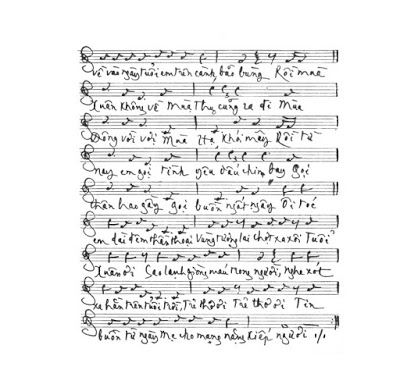 về vào ngày tuổi em trên cành bão bùng Rồi mùa
Xuân không về Mùa Thu cũng ra đi Mùa
Đông vời vợi Mùa Hạ Khói mây Rồi từ
nay em gọi tình yêu dấu chim bay gọi
thân hao gầy gọi buồn ngất ngây Ôi tóc
em dài đêm thần thoại Vùng tương lai chợt xa xôi Tuổi
Xuân ơi Sao lạnh giòng máu trong người, nghe xót
xa hằn lên tuổi trời, Trẻ thơ ơi Trẻ thơ ơi Tin
buồn từ ngày Mẹ cho mang nặng kiếp người